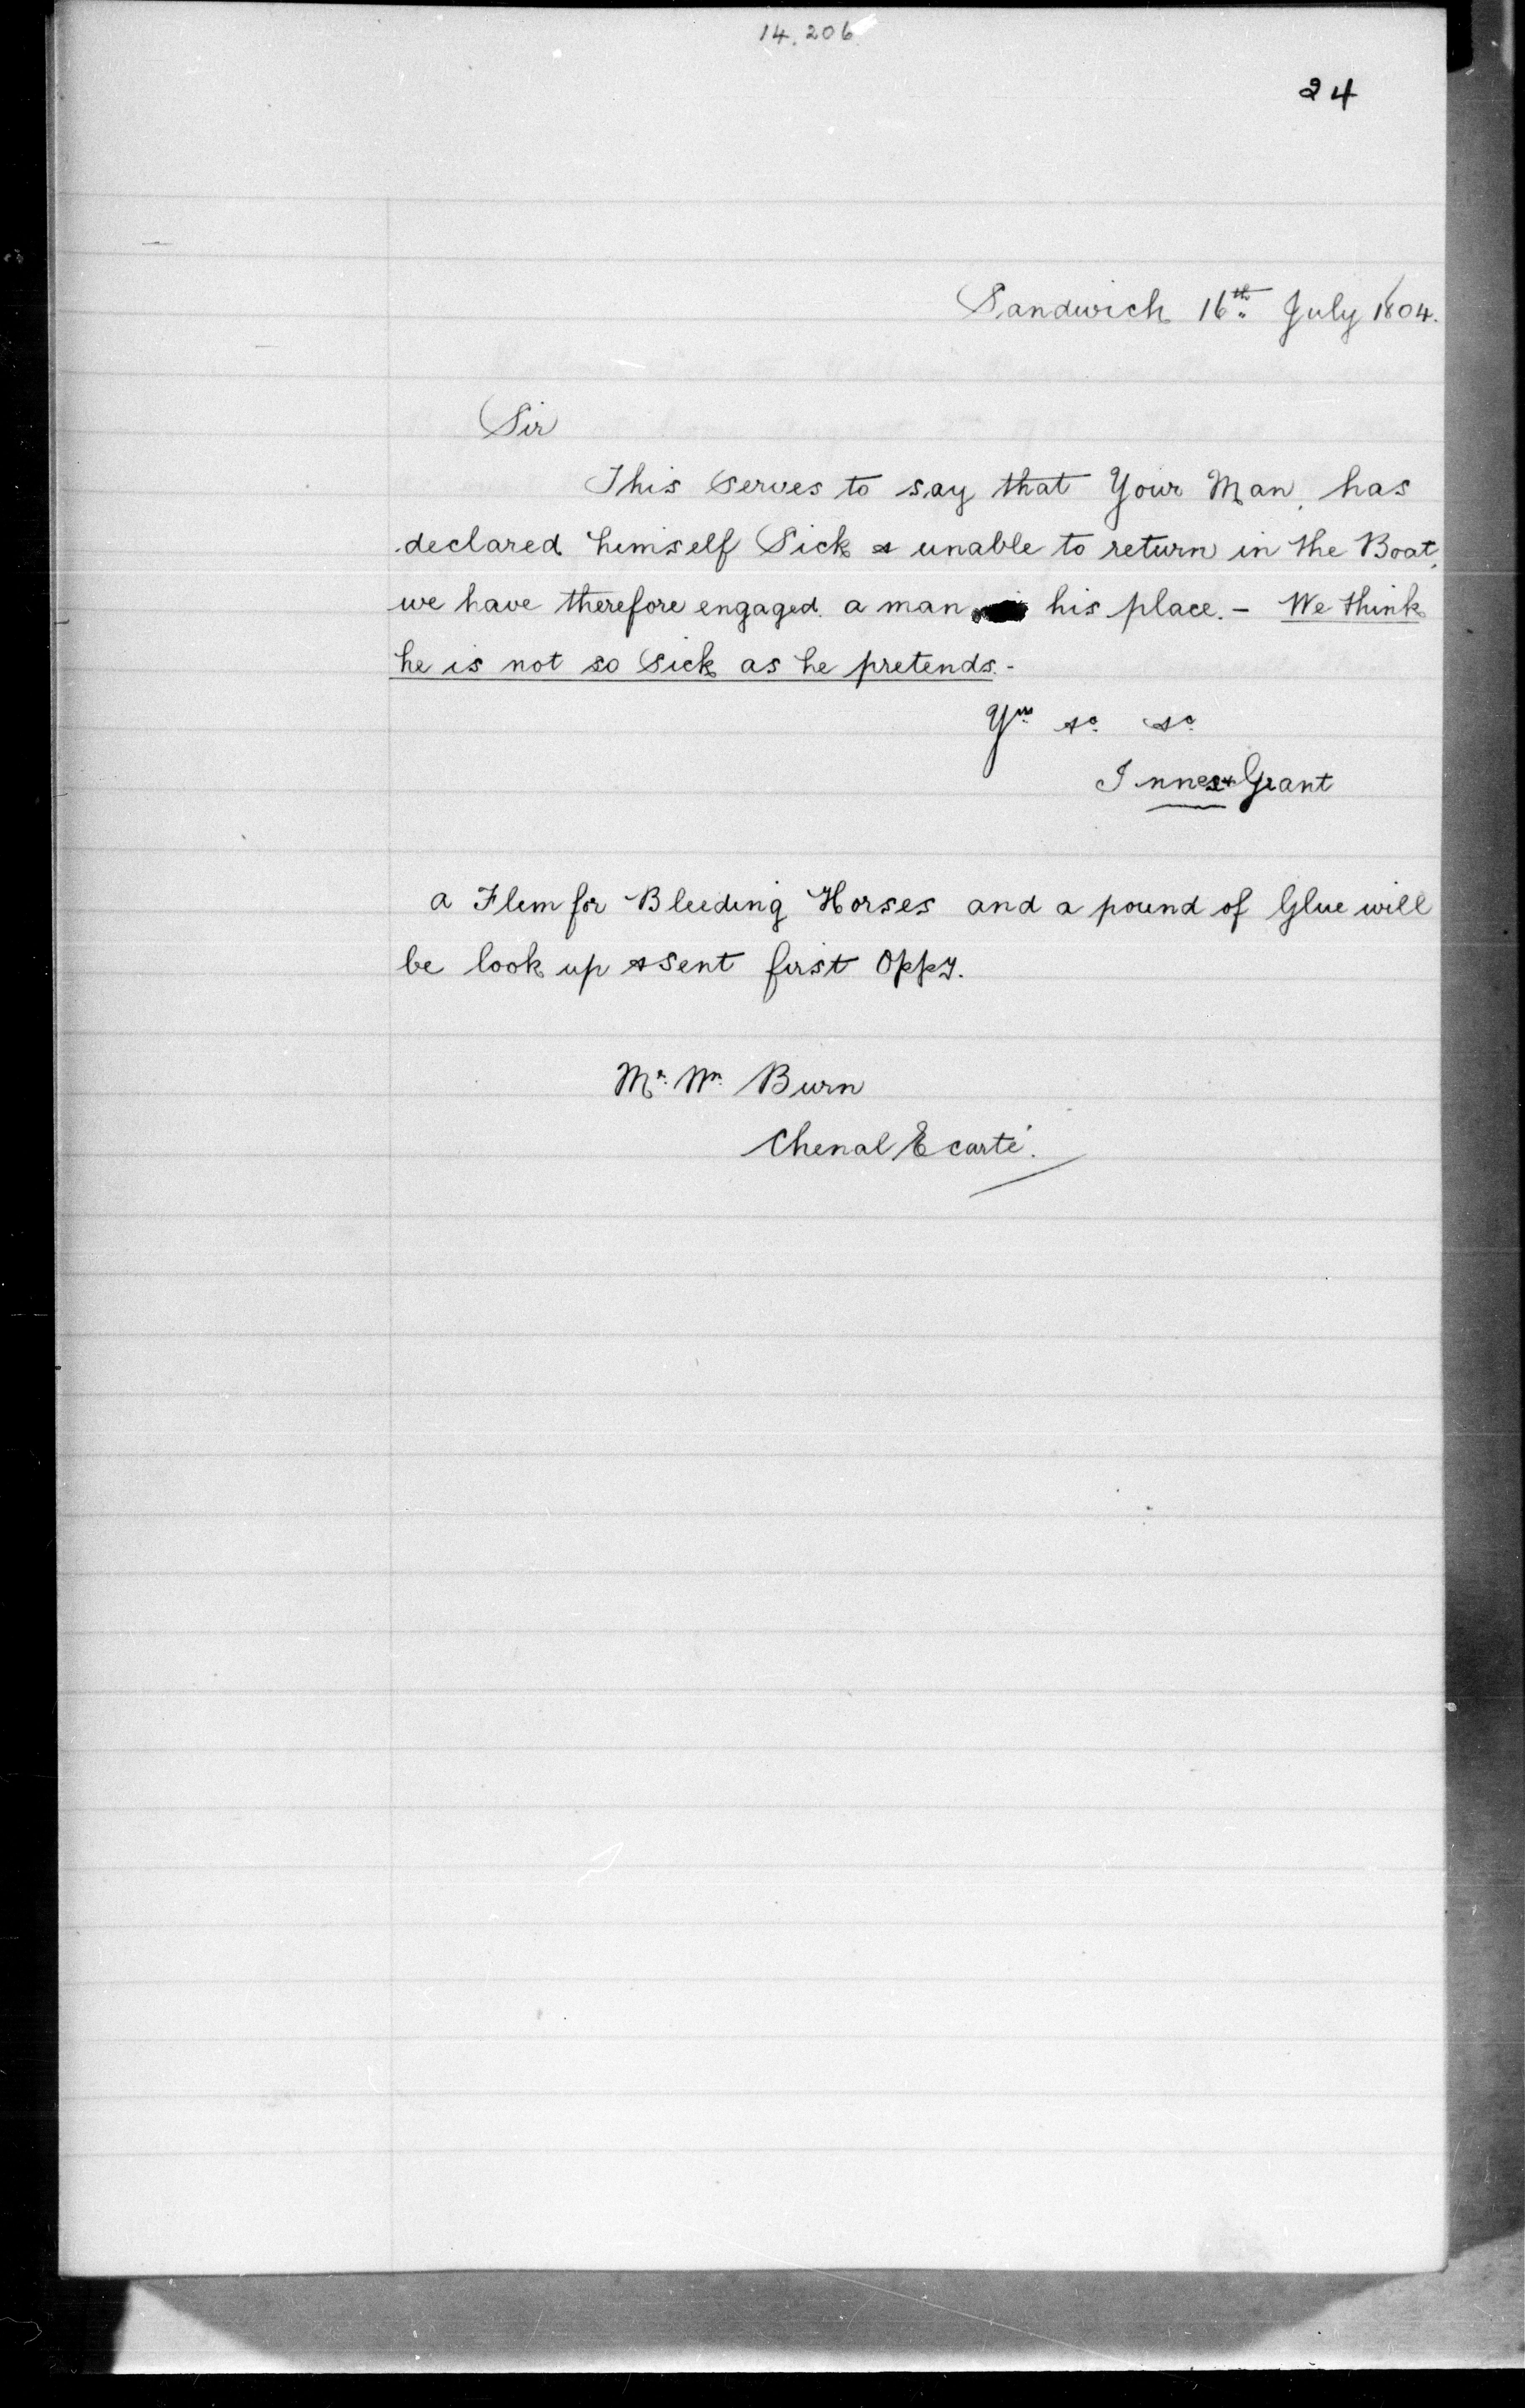 14.206
24
Sandwich 16th July 1804.
Sir
This serves to say that Your Man, has
declared himself Sick & unable to return in the Boat,
we have therefore engaged a man his place. - We think
he is not so Sick as he pretends. -
Yrs &c &c
Innes & Grant
a Flem for Bleeding Horses and a pound of Glue will
be look up & sent first Oppy.
Mr. Wm Burn
Chenal Ecarté.